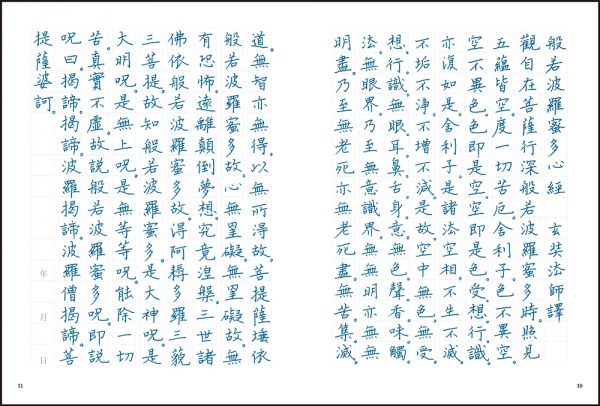 般若波羅蜜多心經　玄奘法師譯
觀自在菩薩行深般若波羅蜜多時照見
五蘊皆空。度一切苦厄。舍利子。色不異空。
空不異色。色即是空。空即是色。受想行識。
亦復如是。舍利子。是諸法空相。不生不滅。
不垢不淨。不增不減。是故空中無色。無受
想行識。無眼耳鼻舌身意。無色聲香味觸
法。無眼界。乃至無意識界。無無明亦無無
明盡。乃至無老死亦無老死盡。無苦集滅
10
道。無智亦無得。以無所得故。菩提薩埵依
般若波羅蜜多故。心無罣礙。無罣礙故。無
有恐怖。遠離顛倒夢想。究竟涅槃。三世諸
佛依般若波羅蜜多故。得阿耨多羅三藐
三菩提。故知般若波羅蜜多。是大神呪。是
大明呪。是無上呪。是無等等呪。能除一切
苦。真實不虛。故說般若波羅蜜多呪。即說
呪曰。揭諦。揭諦。波羅揭諦。波羅僧揭諦。菩
提薩婆訶。
年　月　日
11